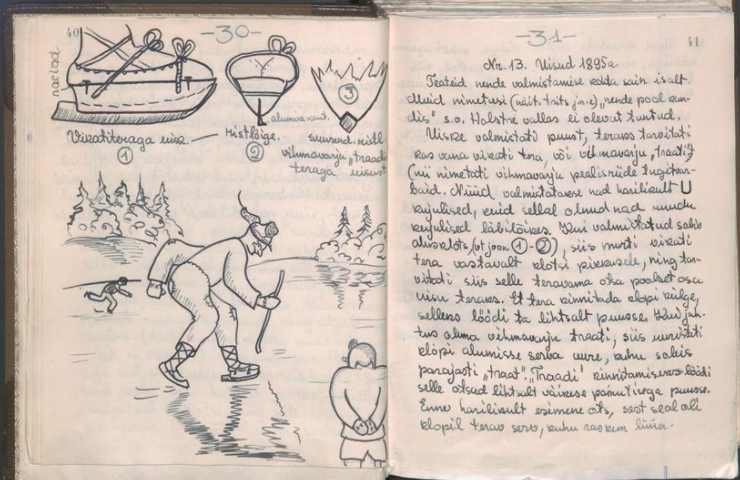 40
-30-
naelad
alumine vant.
Vikatiteraga uisk
ristlõige.
suurend. ristl.
vihmavarju „traadi
teraga uisust
1
2
3
-31-
41
Nr. 13. Uisud 1895a.
Teateid nende valmistamise kohta sain isalt.
Muid nimetusi (näit. trits j.n.e), nende pool kan-
dis" s.o. Holstre vallas ei olevat tuntud.
Uiske valmistati puust, teraks tarvitati
kas vana vikati tera, või vihmavarju „traati"
(nii nimetati vihmavarju pealisriide tugikaar-
baid. Nüüd valmistatakse nad harilikult U
kujulised, kuid sellal olnud nad muudu
kujulised läbilõikes. Kui valmistatud sobiv
alusklots, (vt joon 1-2), siis murti vikati
tera vastavalt klotsi pikkusele, ning tar-
vitati siis selle teravama otsa poolset osa
uisu teraks. Et tera kinnitada klopi külge,
selleks löödi ta lihtsalt puusse. Kui jan-
tus oma vihmavarju traati, siis uuristati
klopi alumisse serva uure, kuhu sobis
parajasti „traat". „Traadi" kinnitamiseks löödi
selle otsad lihtsalt väikese painutusega puusse.
Enne harilikult esimene ots, sest seal oli
klopil terav serv, kuhu raskem lüüa.